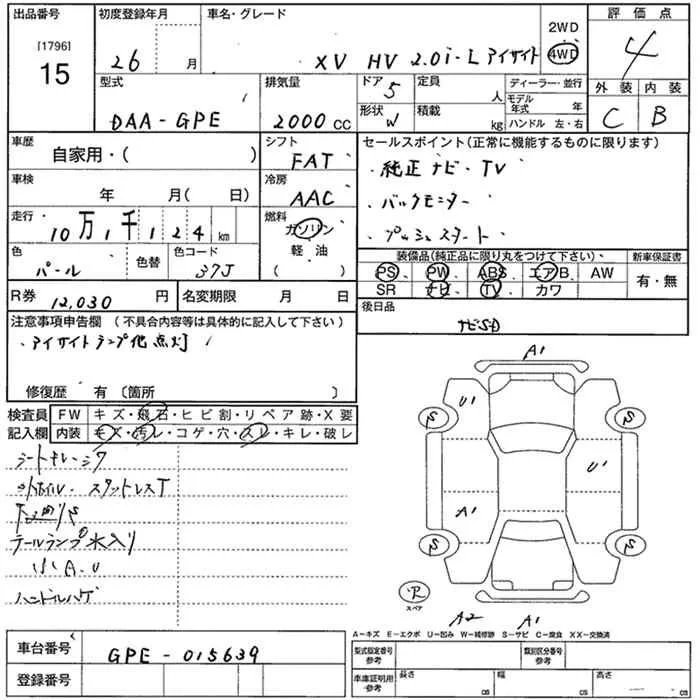 出品番号
[1796]
15
初度登録年月
26 月
車名・グレード
XV HV 2.0i-L アイサイト
2WD
4WD
評価点
4
外装 内装
C B
型式
DAA-GPE
排気量
2000 CC
ドア 5
形状 W
定員 人
積載 kg
ディーラー・並行
モデル年式 年
ハンドル 左・右
車歴
自家用・( )
シフト
FAT
車検
年 月( 日)
冷房
AAC
走行
10万1千124 km
燃料
ガソリン
軽油
( )
色
パール
色替
色コード
37J
R券 12,030 円
名変期限 月 日
セールスポイント(正常に機能するものに限ります)
・純正ナビ・TV
・バックモニター
・プッシュスタート
装備品(純正品に限り丸をつけて下さい)、
新車保証書
PS PW ABS エアB AW
有・無
SR ナビ TV カワ
後日品
ナビSD
注意事項申告欄 (不具合内容等は具体的に記入して下さい)
・アイサイトランプ他点灯
修復歴 有 〔箇所 〕
検査員
記入欄
FW キズ・飛石・ヒビ割・リペア跡・X要
内装 キズ・汚レ・コゲ・穴・スレ・キレ・破レ
スタットレスT
下廻りS
テールランプ水入り
小A.U
ハンドルハゲ
A1
U1
S
S
U1
A1
S
S
R
スペア
A2 A1
A-キズ E-エクボ U-凹み W-補修跡 S-サビ C-腐食 XX-交換済
車台番号
GPE-015639
登録番号
型式指定番号
参考
類別区分番号
参考
車庫証明用
参考
長さ cm
幅 cm
高さ cm